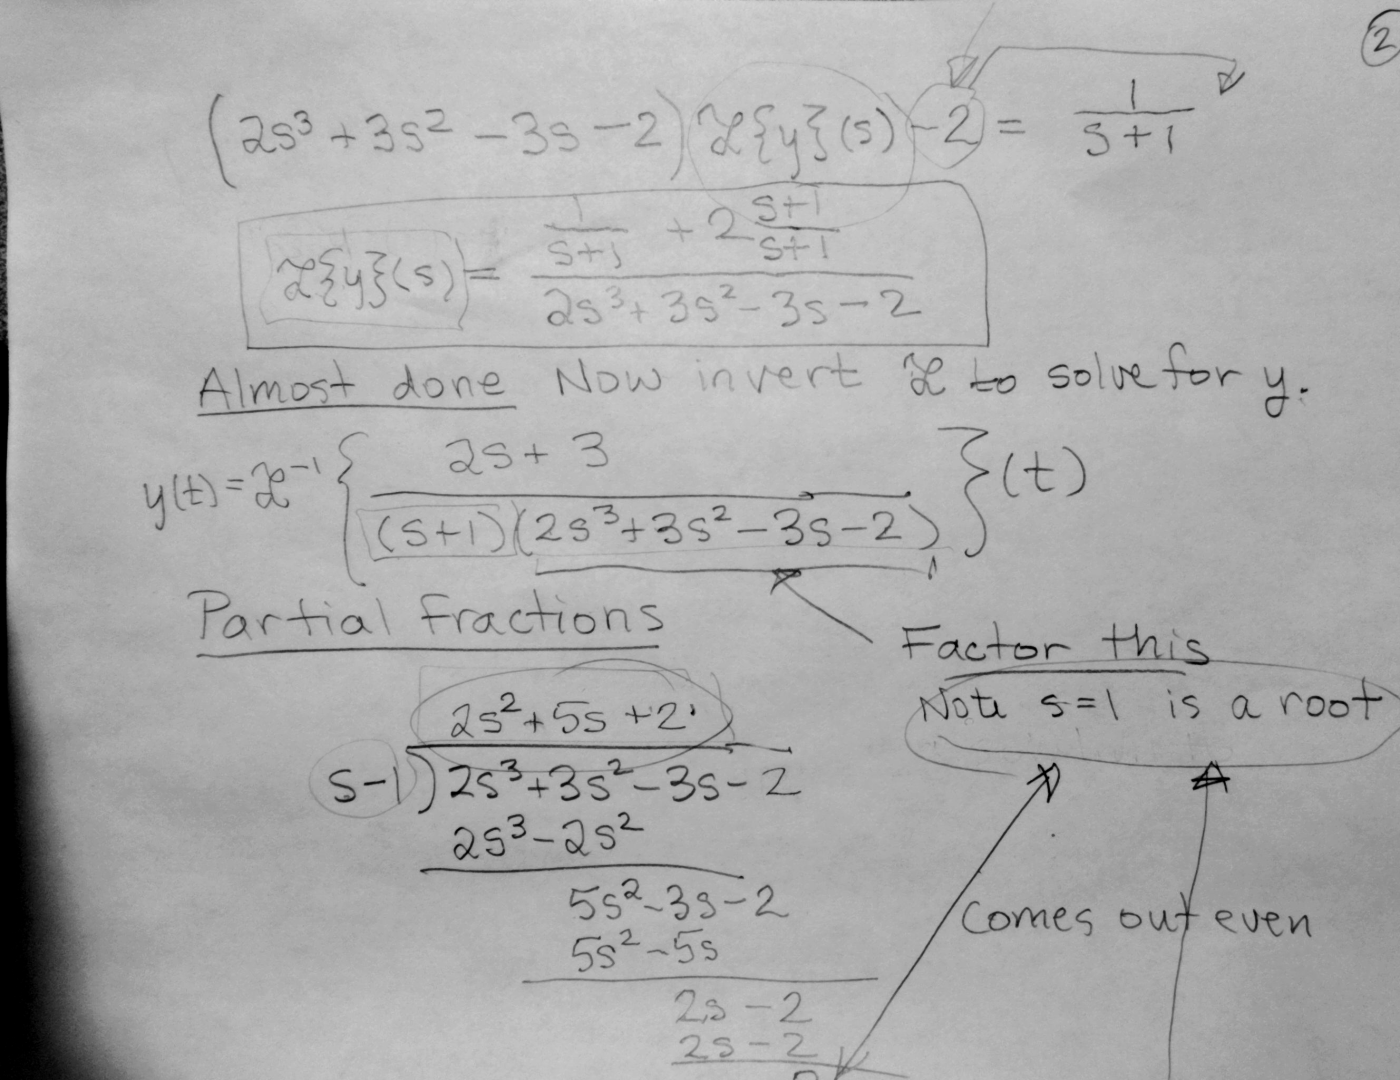 ②
(2s³ + 3s² − 3s − 2) ℒ{y}(s) − 2 = 1/(s+1)
ℒ{y}(s) = (1/(s+1) + 2 (s+1)/(s+1)) / (2s³ + 3s² − 3s − 2)
Almost done Now invert ℒ to solve for y.
y(t) = ℒ⁻¹ { (2s + 3) / ((s+1)(2s³+3s²−3s−2)) } (t)
Partial Fractions
Factor this
Note s=1 is a root
2s² + 5s + 2
s−1 ) 2s³+3s²−3s−2
2s³−2s²
5s²−3s−2
Comes out even
5s²−5s
2s−2
2s−2